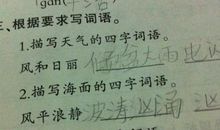 三、根据要求写词语。
1.描写天气的四字词语。
风和日丽 倾盆大雨
2.描写海面的四字词语。
风平浪静 波涛汹涌